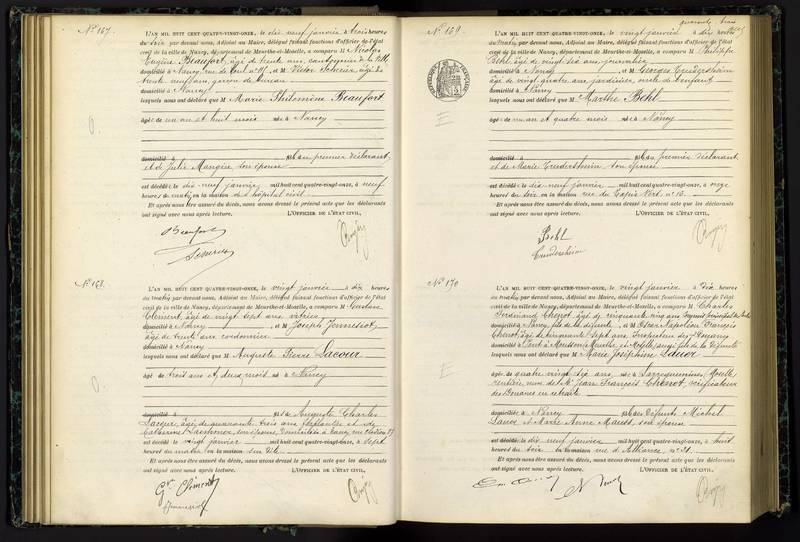 N° 167.
L'AN MIL HUIT CENT QUATRE-VINGT-ONZE, le dix neuf janvier à trois heures
du soir par devant nous, Adjoint au Maire, délégué faisant fonctions d'officier de l'état
civil de la ville de Nancy, département de Meurthe-et-Moselle, a comparu M Nicolas
Eugène Beaufort, âgé de trente ans, cantonnier de la Ville
domicilié à Nancy, rue de Toul n°, et M Victor
trente neuf ans, garçon de bureau
domicilié à Nancy
lesquels nous ont déclaré que Marie Philomène Beaufort
âgée de un an et huit mois née à Nancy
domicilié à fille du premier déclarant
et de Julie Mangin son épouse
est décédée le dix neuf janvier mil huit cent quatre-vingt-onze, à neuf
heures du matin en la maison de l'hôpital civil
Et après nous être assuré du décès, nous avons dressé le présent acte que les déclarants
ont signé avec nous après lecture. L'OFFICIER DE L'ÉTAT CIVIL,
Beaufort
N° 168.
L'AN MIL HUIT CENT QUATRE-VINGT-ONZE, le vingt janvier à dix heures
du matin par devant nous, Adjoint au Maire, délégué faisant fonctions d'officier de l'état
civil de la ville de Nancy, département de Meurthe-et-Moselle, a comparu M Gustave
Clément, âgé de vingt sept ans, vitrier
domicilié à Nancy, et M Joseph Jennesson,
âgé de trente ans cordonnier
domicilié à Nancy
lesquels nous ont déclaré que Auguste Pierre Lacour
âgé de trois ans et deux mois né à Nancy
domicilié à fils de Auguste Charles
Lacour, âgé de quarante trois ans et de
Catherine son épouse, domiciliés à Nancy rue
est décédé le vingt janvier mil huit cent quatre-vingt-onze, à sept
heures du matin en la maison sus dite
Et après nous être assuré du décès, nous avons dressé le présent acte que les déclarants
ont signé avec nous après lecture. L'OFFICIER DE L'ÉTAT CIVIL,
Clément
quarante trois
N° 169.
L'AN MIL HUIT CENT QUATRE-VINGT-ONZE, le vingt janvier à dix heures
du matin par devant nous, Adjoint au Maire, délégué faisant fonctions d'officier de l'état
civil de la ville de Nancy, département de Meurthe-et-Moselle, a comparu M Philippe
Bohl, âgé de vingt six ans, journalier
domicilié à Nancy et M Georges Trudersheim
âgé de vingt quatre ans, jardinier, oncle de l'enfant
domicilié à Nancy
lesquels nous ont déclaré que Marthe Bohl
âgée de un an et quatre mois née à Nancy
domicilié à fille du premier déclarant
et de Marie Trudersheim son épouse
est décédée le dix neuf janvier mil huit cent quatre-vingt-onze, à onze
heures du soir en la maison rue du Tapis Vert, n° 13
Et après nous être assuré du décès, nous avons dressé le présent acte que les déclarants
ont signé avec nous après lecture. L'OFFICIER DE L'ÉTAT CIVIL,
Bohl
Trudersheim
N° 170
L'AN MIL HUIT CENT QUATRE-VINGT-ONZE, le vingt janvier à dix heures
du matin par devant nous, Adjoint au Maire, délégué faisant fonctions d'officier de l'état
civil de la ville de Nancy, département de Meurthe-et-Moselle, a comparu M Charles
Ferdinand Chenot, âgé de cinquante cinq ans
domicilié à Nancy, fils de la défunte, et M Oscar Napoléon François
Chenot, âgé de cinquante sept ans, Inspecteur des Douanes
domicilié à Pont à Mousson, Meurthe et Moselle, aussi fils de la défunte
lesquels nous ont déclaré que Marie Joséphine Lauer
âgée de quatre vingt six ans, née à Sarreguemines, Moselle,
rentière, veuve de M. Jean François Chenot, vérificateur
des Douanes en retraite
domicilié à Nancy fille des défunts Michel
Lauer et Marie Anne son épouse
est décédée le dix neuf janvier mil huit cent quatre-vingt-onze, à huit
heures du soir en la maison rue d'Alliance, n° 21
Et après nous être assuré du décès, nous avons dressé le présent acte que les déclarants
ont signé avec nous après lecture. L'OFFICIER DE L'ÉTAT CIVIL,